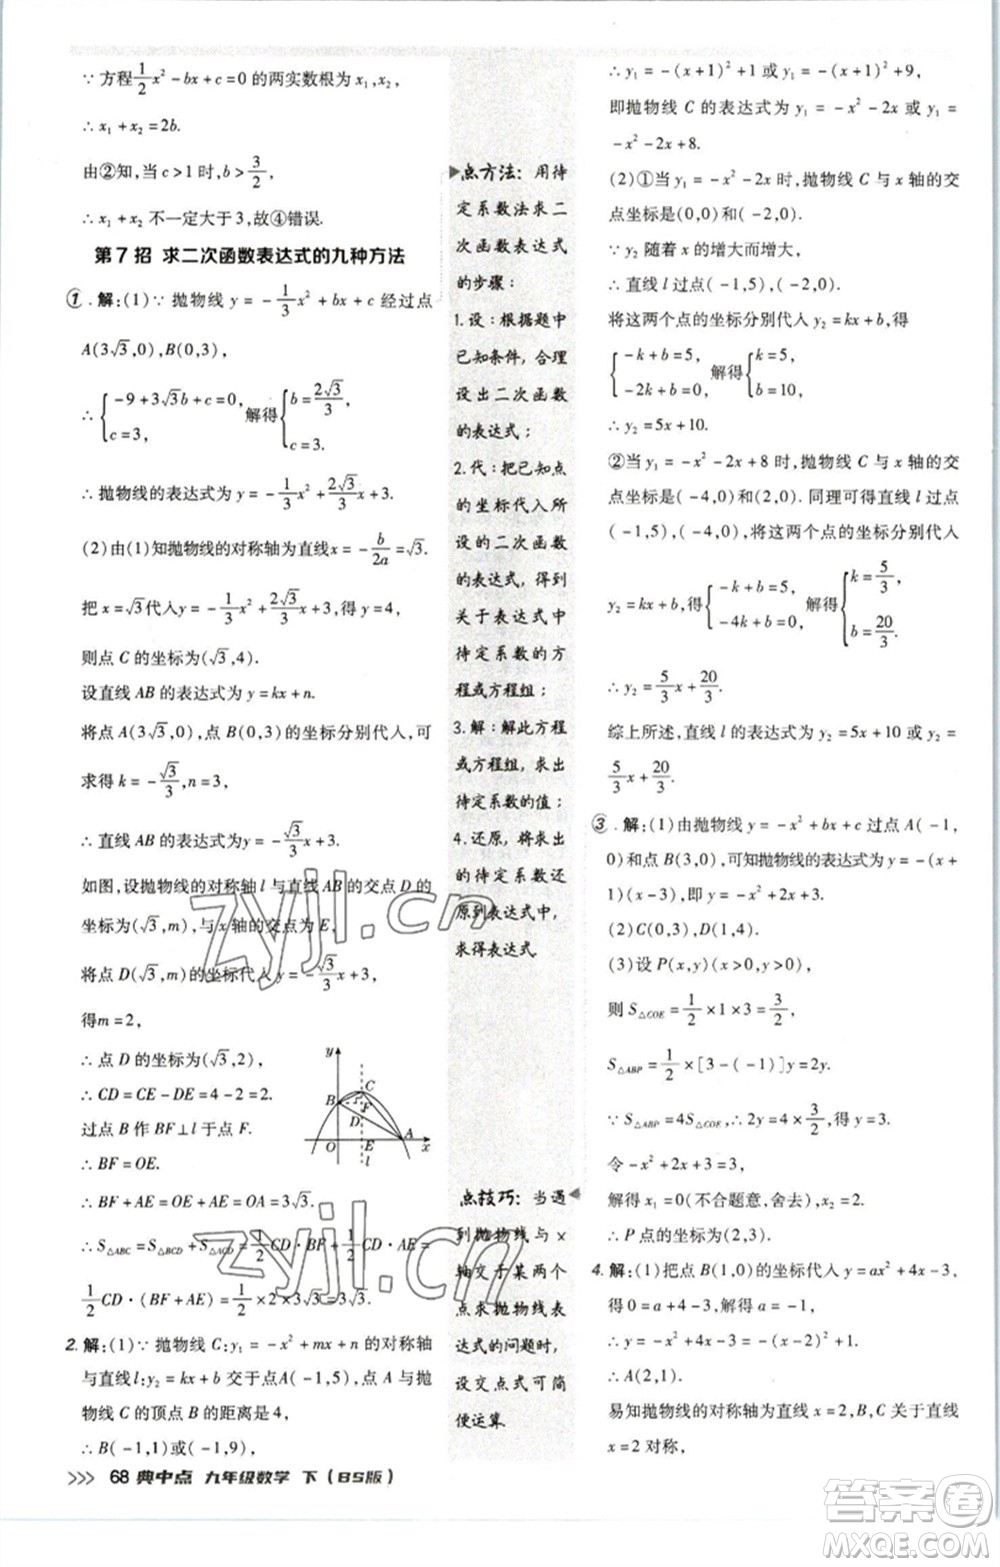 ∵ 方程1/2x²-bx+c=0 的两实数根为 x₁,x₂,
∴ x₁+x₂=2b.
由②知,当 c>1 时,b>3/2,
∴ x₁+x₂ 不一定大于 3,故④错误.
第 7 招 求二次函数表达式的九种方法
1. 解:(1)∵ 抛物线 y=-1/3x²+bx+c 经过点
A(3√3,0),B(0,3),
∴ {-9+3√3b+c=0, c=3, 解得{b=2√3/3, c=3.
∴ 抛物线的表达式为 y=-1/3x²+2√3/3x+3.
(2)由(1)知抛物线的对称轴为直线x=-b/2a=√3.
把 x=√3代入y=-1/3x²+2√3/3x+3,得 y=4,
则点 C 的坐标为(√3,4).
设直线 AB 的表达式为 y=kx+n.
将点A(3√3,0),点 B(0,3)的坐标分别代入,可
求得 k=-√3/3,n=3.
∴ 直线 AB 的表达式为 y=-√3/3x+3.
如图,设抛物线的对称轴 l 与直线 AB 的交点 D 的
坐标为(√3,m),与 x轴的交点为 E,
将点 D(√3,m)的坐标代入 y=-√3/3x+3,
得m=2,
∴ 点 D 的坐标为(√3,2),
∴ CD=CE-DE=4-2=2.
过点 B 作 BF⊥l 于点 F.
∴ BF=OE.
∴ BF+AE=OE+AE=OA=3√3,
∴ S△ABC=S△BCD+S△ACD=1/2CD·BF+1/2CD·AE=
1/2CD·(BF+AE)=1/2×2×3√3=3√3.
y
C
B
F
D
O
E
A
x
l
2. 解:(1)∵ 抛物线 C:y₁=-x²+mx+n 的对称轴
与直线l:y₂=kx+b 交于点A(-1,5),点 A 与抛
物线 C 的顶点 B 的距离是 4,
∴ B(-1,1)或(-1,9),
点方法:用待
定系数法求二
次函数表达式
的步骤:
1.设:根据题中
已知条件,合理
设出二次函数
的表达式;
2.代:把已知点
的坐标代入所
设的二次函数
的表达式,得到
关于表达式中
待定系数的方
程或方程组;
3.解:解此方程
或方程组,求出
待定系数的值;
4.还原:将求出
的待定系数还
原到表达式中,
求得表达式.
点技巧:当遇
到抛物线与 x
轴交于某两个
点求抛物线表
达式的问题时,
设交点式可简
便运算.
∴ y₁=-(x+1)²+1 或 y₁=-(x+1)²+9,
即抛物线 C 的表达式为 y₁=-x²-2x 或 y₁=
-x²-2x+8.
(2)①当 y₁=-x²-2x 时,抛物线 C 与 x 轴的交
点坐标是(0,0)和(-2,0).
∵ y₂ 随着 x 的增大而增大,
∴ 直线 l 过点(-1,5),(-2,0).
将这两个点的坐标分别代入 y₂=kx+b,得
{-k+b=5, -2k+b=0, 解得{k=5, b=10,
∴ y₂=5x+10.
②当 y₁=-x²-2x+8 时,抛物线 C 与 x 轴的交
点坐标是(-4,0)和(2,0). 同理可得直线 l 过点
(-1,5),(-4,0),将这两个点的坐标分别代入
y₂=kx+b,得{-k+b=5, -4k+b=0, 解得{k=5/3, b=20/3,
∴ y₂=5/3x+20/3.
综上所述,直线 l 的表达式为 y₂=5x+10 或y₂=
5/3x+20/3.
3. 解:(1)由抛物线 y=-x²+bx+c 过点 A(-1,
0)和点 B(3,0),可知抛物线的表达式为 y=-(x+
1)(x-3),即 y=-x²+2x+3.
(2)C(0,3),D(1,4).
(3)设 P(x,y)(x>0,y>0),
则 S△COE=1/2×1×3=3/2,
S△ABP=1/2×[3-(-1)]y=2y.
∵ S△ABP=4S△COE,∴ 2y=4×3/2,得 y=3.
令-x²+2x+3=3,
解得 x₁=0(不合题意,舍去),x₂=2,
∴ P 点的坐标为(2,3).
4. 解:(1)把点 B(1,0)的坐标代入 y=ax²+4x-3,
得 0=a+4-3,解得 a=-1,
∴ y=-x²+4x-3=-(x-2)²+1.
∴ A(2,1).
易知抛物线的对称轴为直线 x=2,B,C 关于直线
x=2 对称,
>>> 68 典中点 九年级数学 下(BS版)
zyjl.cn
zyjl.cn
答案圈
MXQE.COM